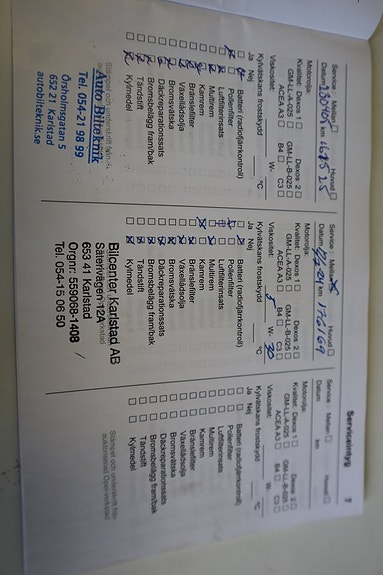 Serviceintyg 7
Service Mellan Huvud
Datum 130405 km 167525
Motorolja
Kvalitet: Dexos 1 Dexos 2
GM-LL-A-025 GM-LL-B-025
ACEA A3 B4 C3
Viskositet: W-
Kylvätskans frostskydd °C
Ja Nej
Batteri (radiofjärrkontroll)
Pollenfilter
Luftfilterinsats
Multirem
Kamrem
Bränslefilter
Växellådsolja
Bromsvätska
Däckreparationssats
Bromsbelägg fram/bak
Tändstift
Kylmedel
Auto Bilteknik
Tel. 054-21 98 99
Örsholmsgatan 5
652 21 Karlstad
autobilteknik.se
Service Mellan Huvud
Datum km 176169
Motorolja
Kvalitet: Dexos 1 Dexos 2
GM-LL-A-025 GM-LL-B-025
ACEA A3 B4 C3
Viskositet: 5 W- 30
Kylvätskans frostskydd °C
Ja Nej
Batteri (radiofjärrkontroll)
Pollenfilter
Luftfilterinsats
Multirem
Kamrem
Bränslefilter
Växellådsolja
Bromsvätska
Däckreparationssats
Bromsbelägg fram/bak
Tändstift
Kylmedel
Bilcenter Karlstad AB
Säterivägen 12A
653 41 Karlstad
Orgnr: 559068-1408 /
Tel. 054-15 06 50
Service Mellan Huvud
Datum km
Motorolja
Kvalitet: Dexos 1 Dexos 2
GM-LL-A-025 GM-LL-B-025
ACEA A3 B4 C3
Viskositet: W-
Kylvätskans frostskydd °C
Ja Nej
Batteri (radiofjärrkontroll)
Pollenfilter
Luftfilterinsats
Multirem
Kamrem
Bränslefilter
Växellådsolja
Bromsvätska
Däckreparationssats
Bromsbelägg fram/bak
Tändstift
Kylmedel
Stämpel och underskrift från
auktoriserad Opel-verkstad